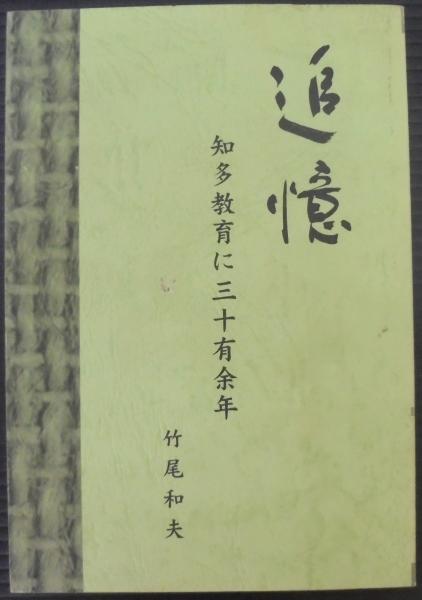 追憶
知多教育に三十有余年
竹尾和夫